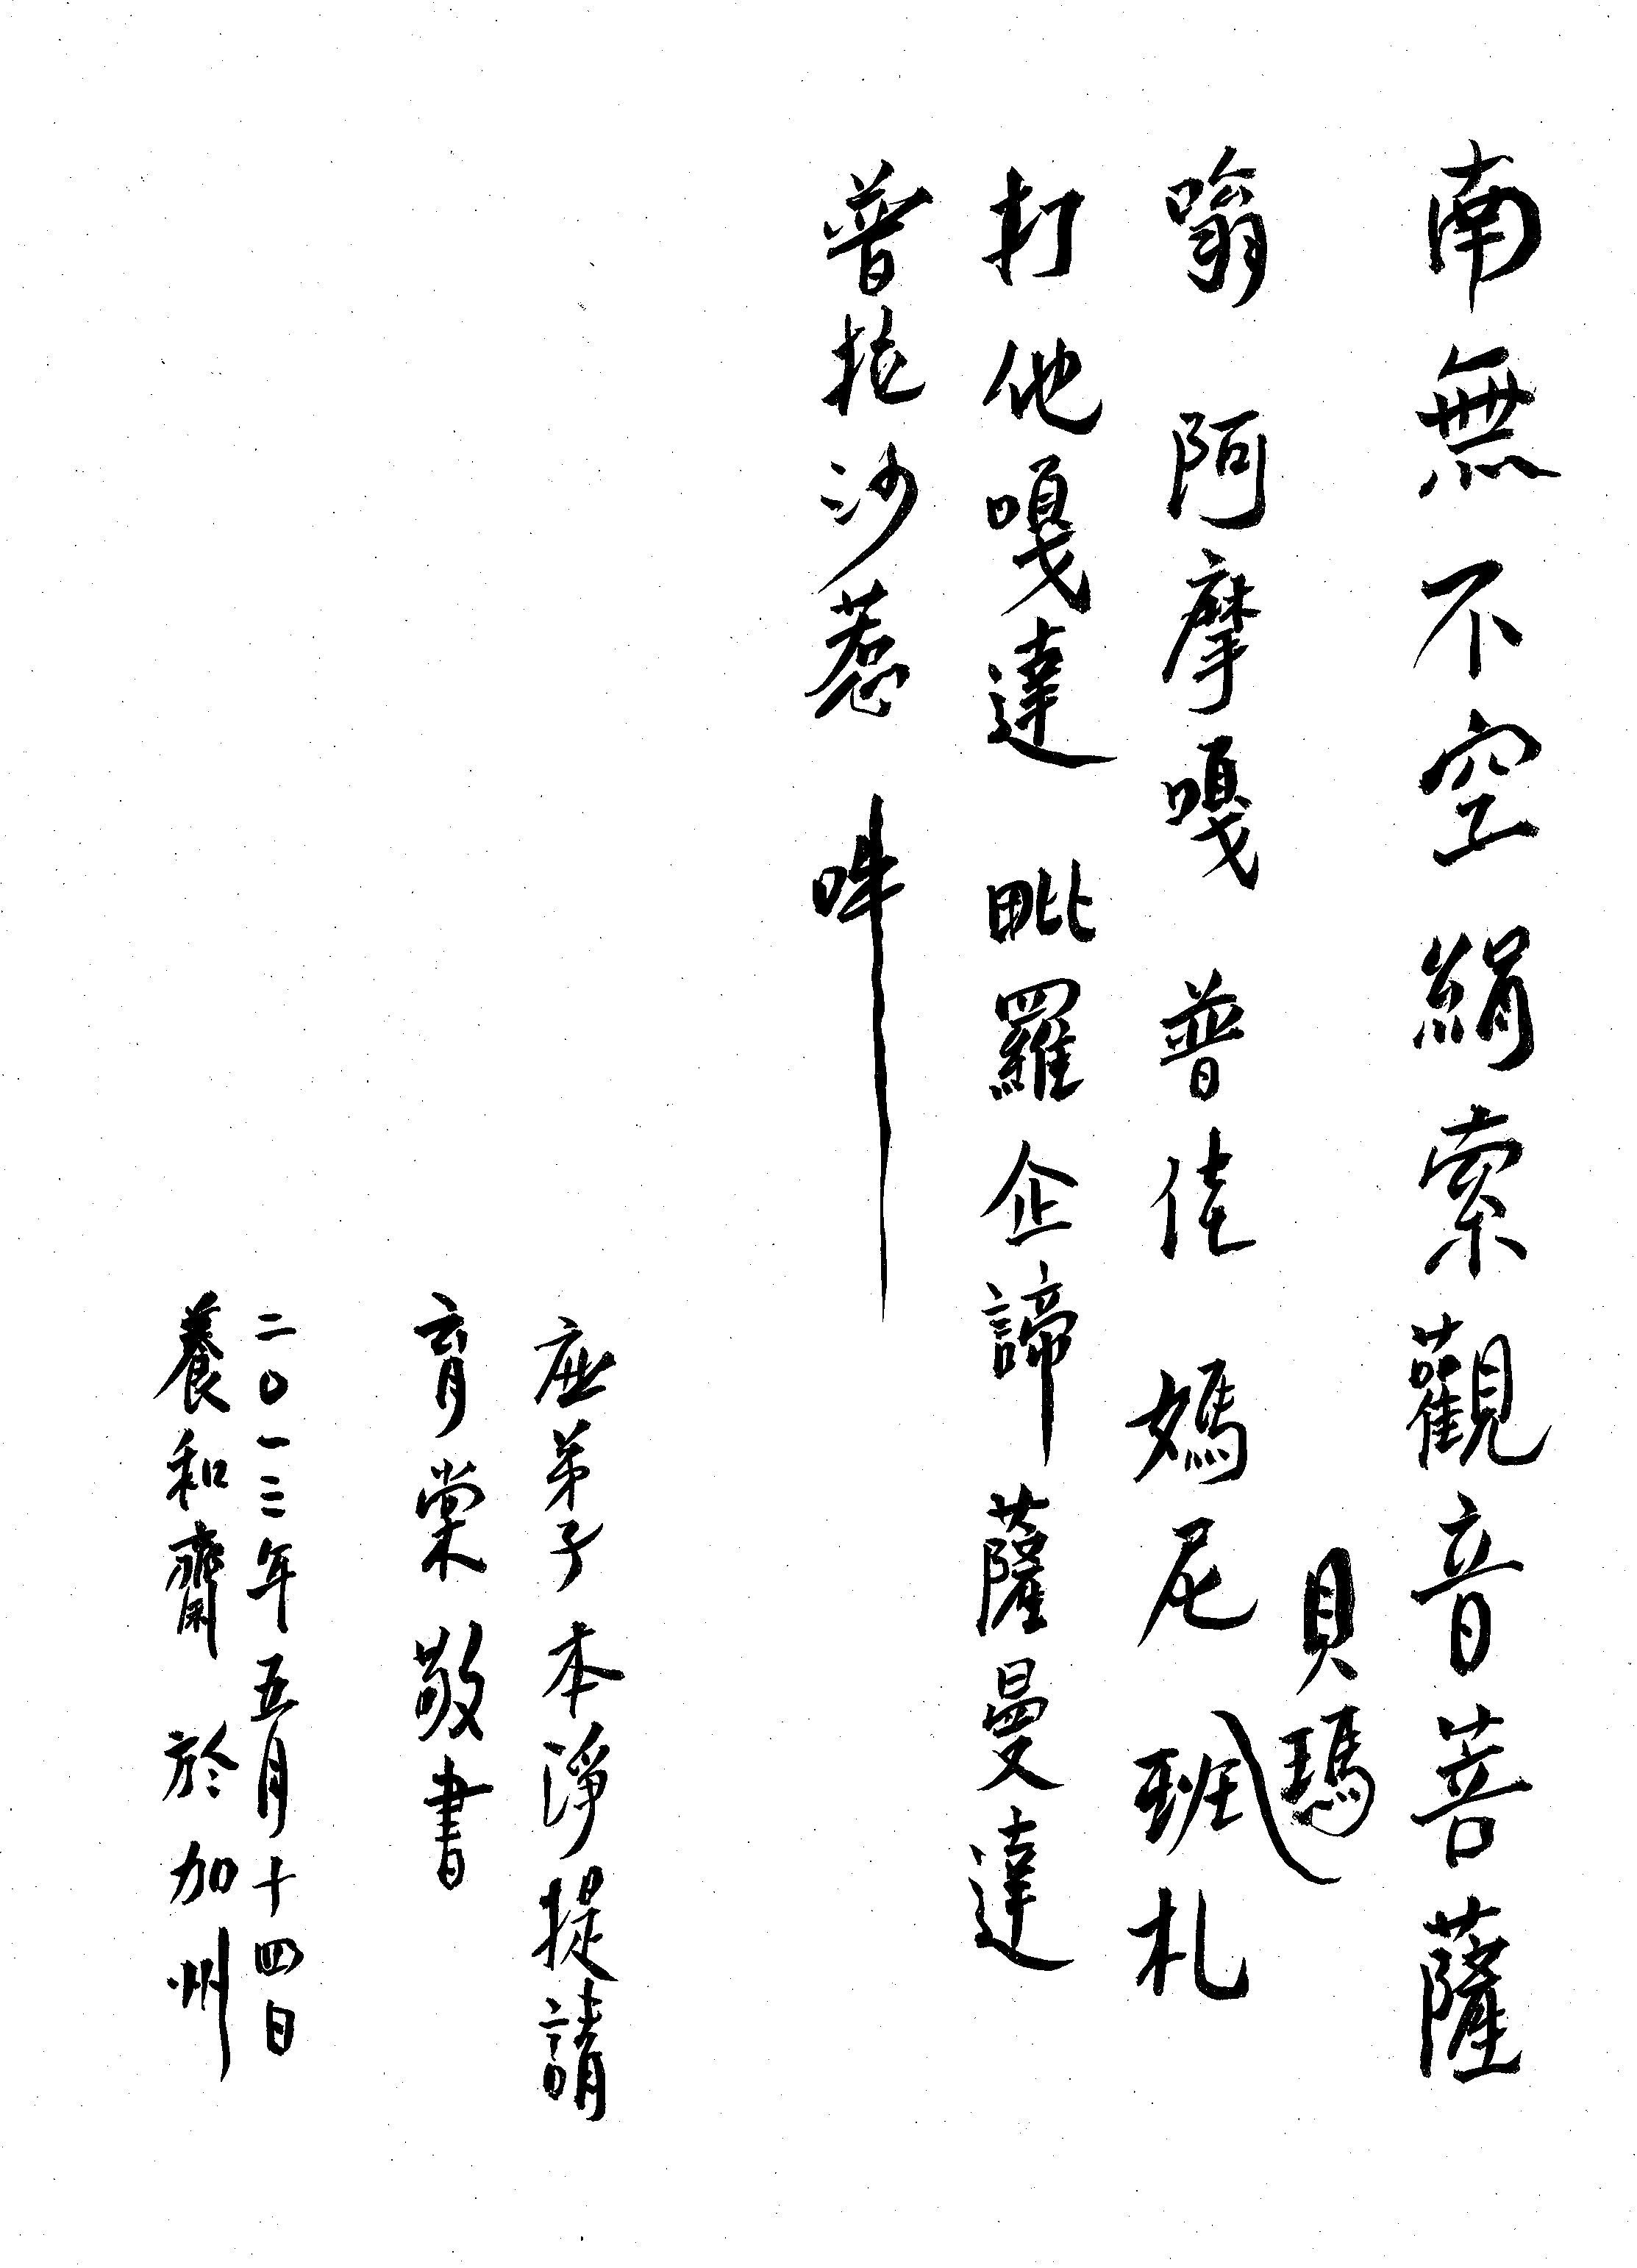 南無不空絹索觀音菩薩
貝瑪
嗡 阿摩嘎 普佳 媽尼 班札
打他嘎達 毗羅企諦 薩曼達
普拉沙惹 吽
应弟子本淨提請
育棠敬書
二〇一三年五月十四日
養和齋 於加州